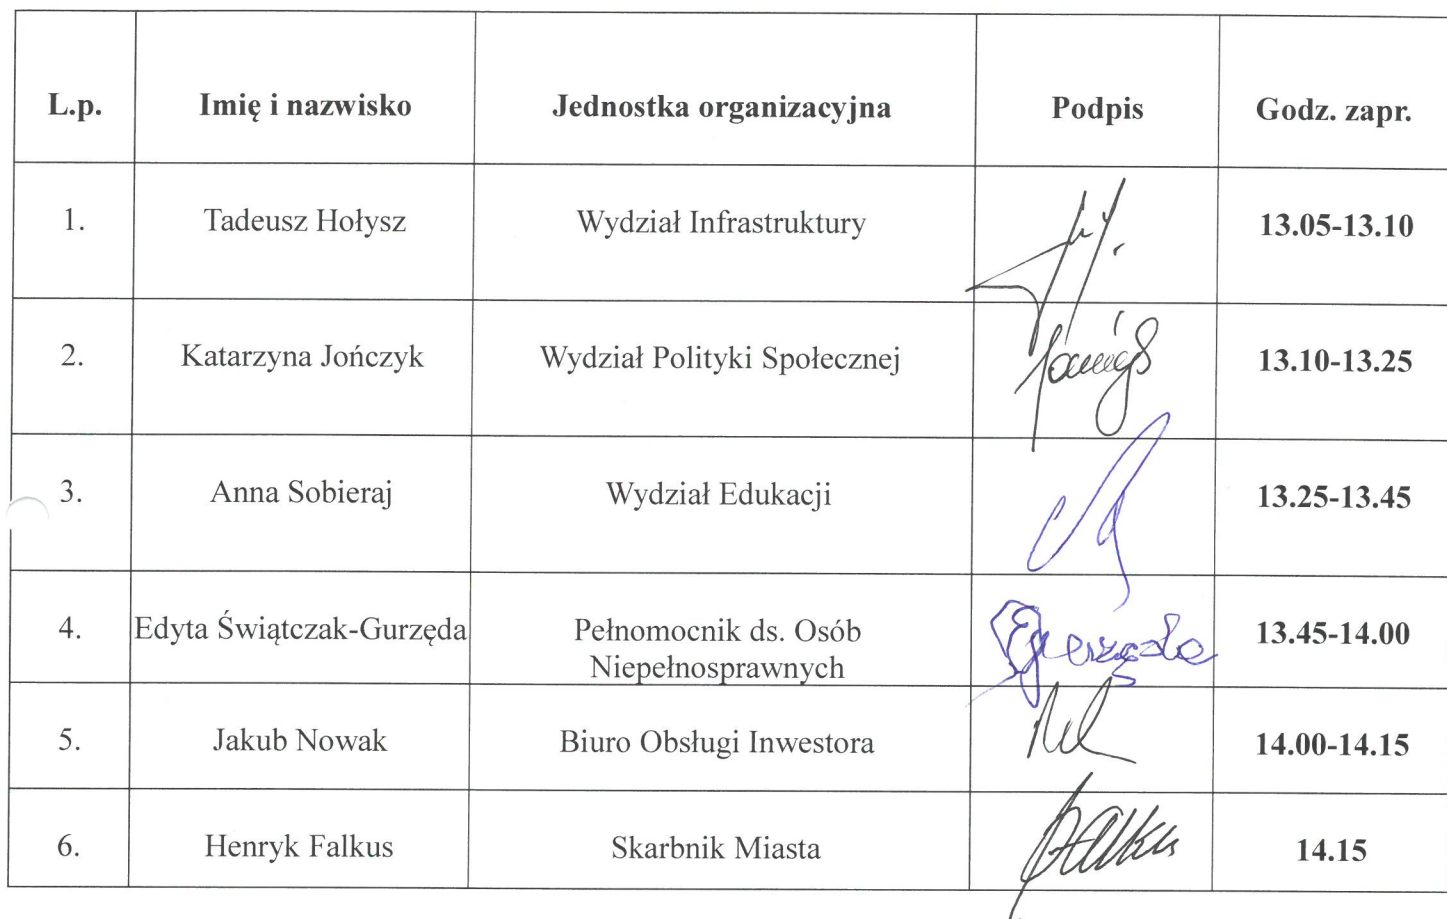 L.p. Imię i nazwisko Jednostka organizacyjna Podpis Godz. zapr.
1. Tadeusz Hołysz Wydział Infrastruktury 13.05-13.10
2. Katarzyna Jończyk Wydział Polityki Społecznej 13.10-13.25
3. Anna Sobieraj Wydział Edukacji 13.25-13.45
4. Edyta Świątczak-Gurzęda Pełnomocnik ds. Osób 13.45-14.00
Niepełnosprawnych
5. Jakub Nowak Biuro Obsługi Inwestora 14.00-14.15
6. Henryk Falkus Skarbnik Miasta 14.15